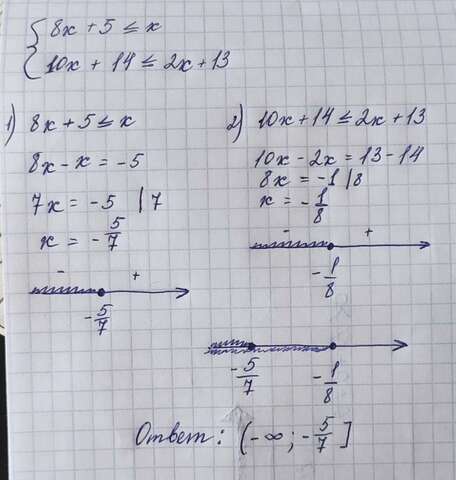 8x + 5 ≤ x
10x + 14 ≤ 2x + 13
1) 8x + 5 ≤ x
8x - x = -5
7x = -5 | 7
x = -5/7
- +
-5/7
2) 10x + 14 ≤ 2x + 13
10x - 2x = 13 - 14
8x = -1 | 8
x = -1/8
- +
-1/8
-5/7 -1/8
Ответ: (-∞; -5/7]